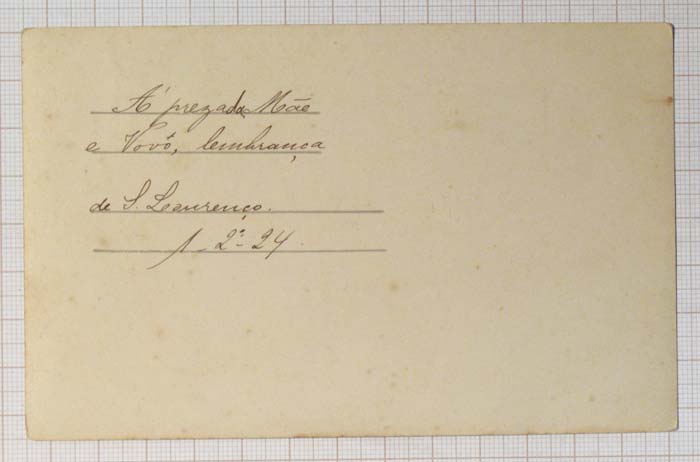 Á prezada Mãe
e Vovó, lembrança
de S. Lourenço.
1-2º-24.